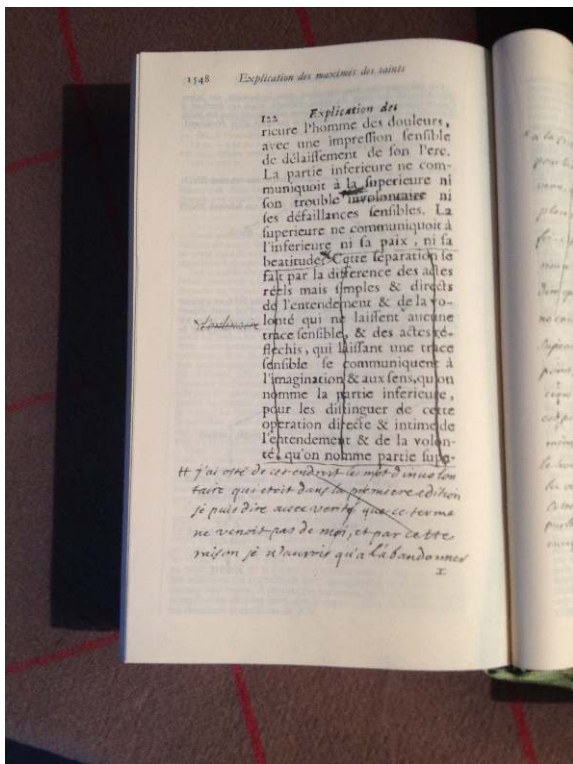 1548 Explication des maximes des saints
122 Explication des
rieure l'homme des douleurs,
avec une impreſſion ſenſible
de délaiſſement de ſon Pere.
La partie inferieure ne com-
muniquoit à la ſuperieure ni
ſon trouble involontaire ni
ſes défaillances ſenſibles. La
ſuperieure ne communiquoit à
l'inferieure ni ſa paix, ni ſa
beatitude. Cette ſeparation ſe
fait par la difference des actes
réels mais ſimples & directs
de l'entendement & de la vo-
lonté qui ne laiſſent aucune
trace ſenſible, & des actes ré-
fléchis, qui laiſſant une trace
ſenſible ſe communiquent à
l'imagination & aux ſens, qu'on
nomme la partie inferieure,
pour les diſtinguer de cette
operation directe & intime de
l'entendement & de la volon-
té, qu'on nomme partie ſupe-
j'ai osté de cet endroit le mot d'inuolon
taire qui étoit dans la premiere edition
je puis dire avec verité que ce terme
ne venoit pas de moi, et par cette
raison je n'aurois qu'a l'abandonner